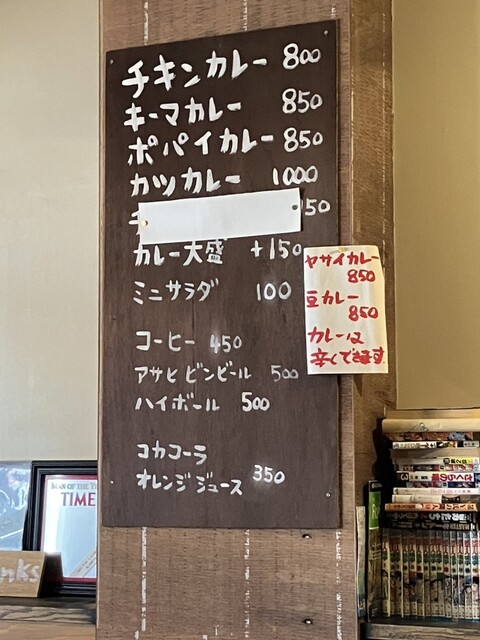 チキンカレー 800
キーマカレー 850
ポパイカレー 850
カツカレー 1000
チ 50
カレー大盛 +150
ミニサラダ 100
コーヒー 450
アサヒ ビンビール 500
ハイボール 500
コカコーラ
オレンジジュース 350
ヤサイカレー
850
豆カレー
850
カレーは
辛くできます
MAN OF THE
TIME
nks